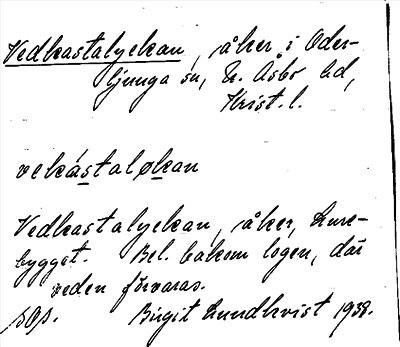 Vedkastalyckan, åker i Öder-
ljunga sn, N. Åsbo hd,
Krist. l.
vekástaløkan
Vedkastalyckan, åker,
bygget. Bel. bakom logen, där
veden förvaras.
Birgit Lundkvist 1938.